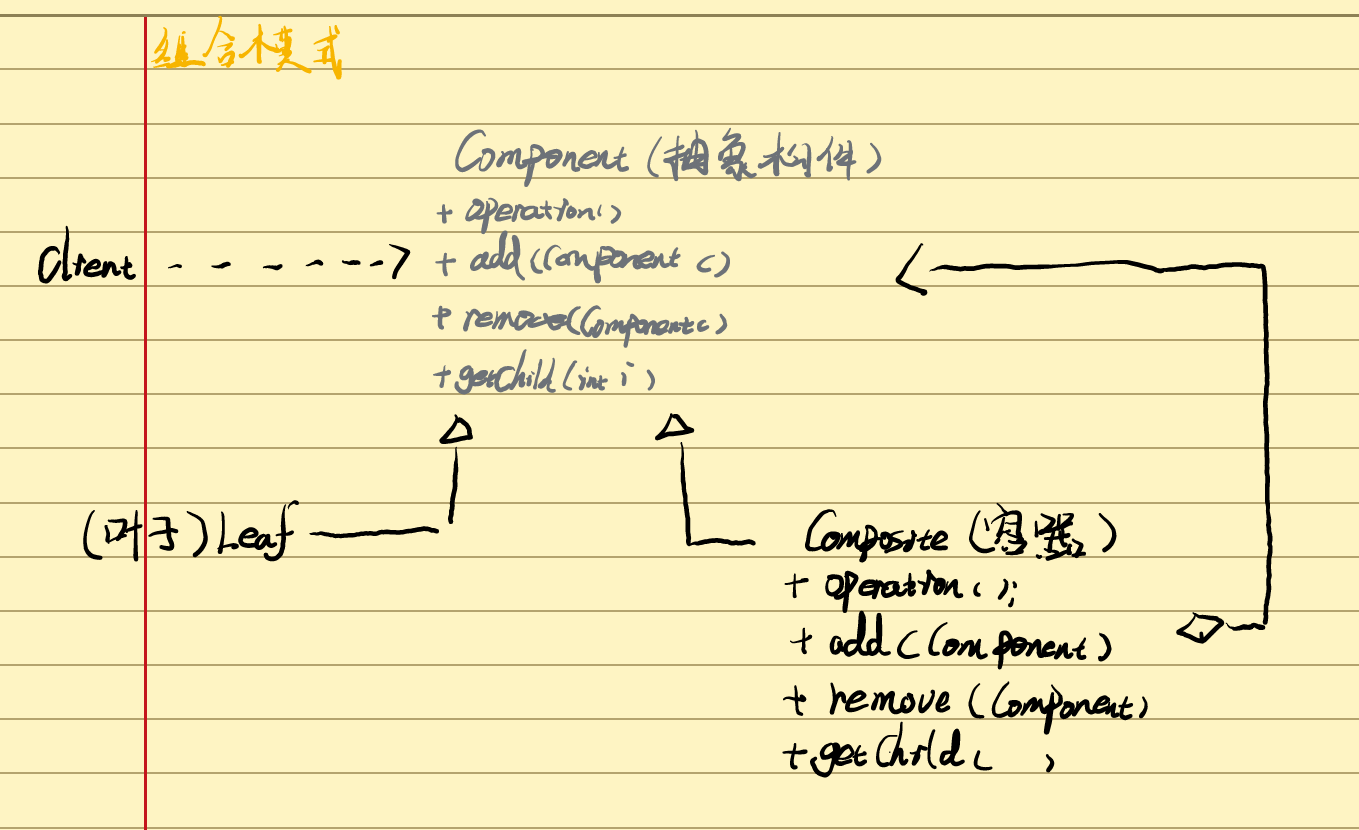 组合模式
Component (抽象构件)
+ operation()
Client
+ add(Component c)
+ remove(Component c)
+ getChild(int i)
(叶子) Leaf
Composite (容器)
+ operation();
+ add(Component)
+ remove(Component)
+ getChild( )